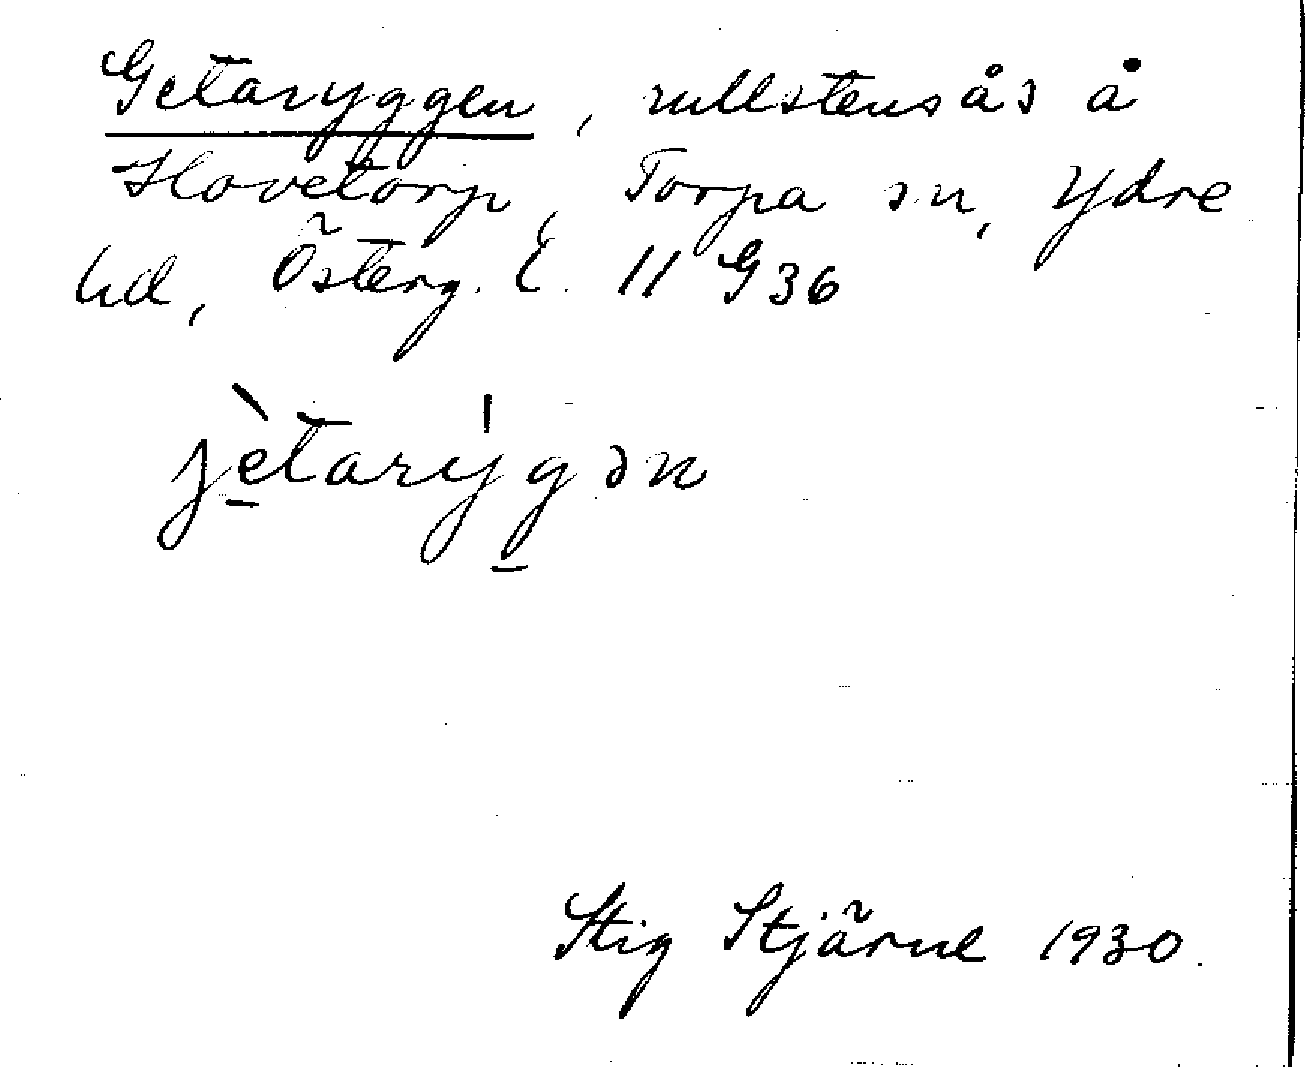 Getaryggen, rullstensås å
Hovetorp, Torpa sn, Ydre
hd, Österg. l. 11 G 36
jètarýgən
Stig Stjärne 1930.